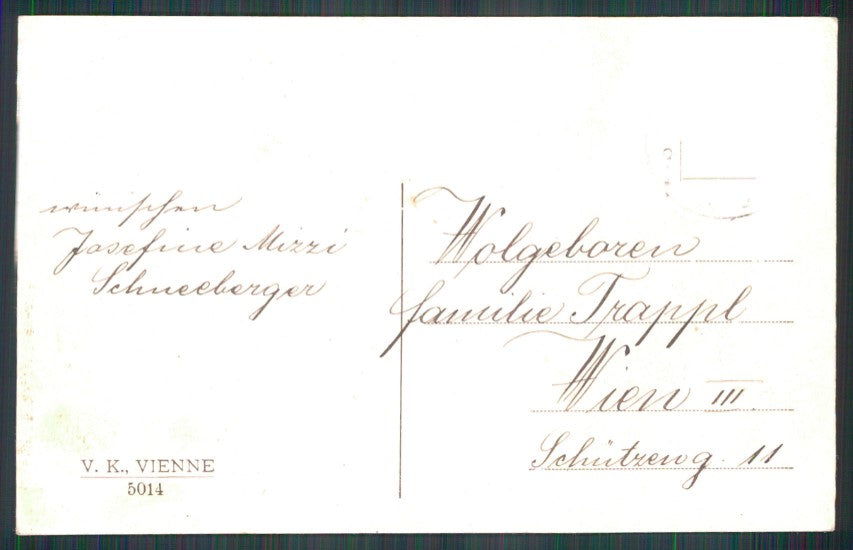 wünschen
Josefine Mizzi
Schneeberger
Wolgeboren
familie Trappl
Wien III
Schützeng. 11
V. K., VIENNE
5014